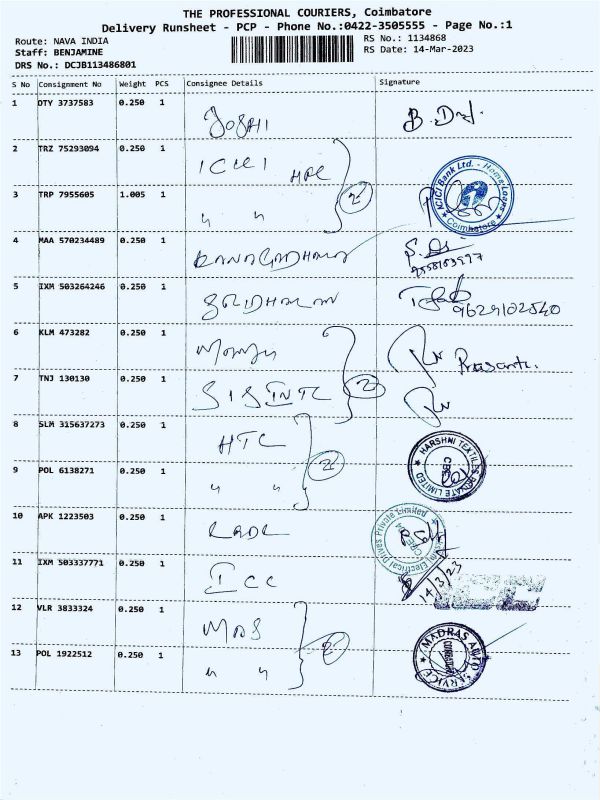 THE PROFESSIONAL COURIERS, Coimbatore
Delivery Runsheet - PCP - Phone No.:0422-3505555 - Page No.:1
Route: NAVA INDIA
RS No.: 1134868
Staff: BENJAMINE
RS Date: 14-Mar-2023
DRS No.: DCJB113486801
S No Consignment No Weight PCS Consignee Details Signature
1 OTY 3737583 0.250 1 JOSHI
2 TRZ 75293094 0.250 1 ICICI HPL
ICICI Bank Ltd. - Home Loans
Coimbatore
3 TRP 7955605 1.005 1 " " 2
4 MAA 570234489 0.250 1
5 IXM 503264246 0.250 1 9629102540
6 KLM 473282 0.250 1
7 TNJ 130130 0.250 1 SISINTL 2
8 SLM 315637273 0.250 1 HTC
HARSHNI TEXTILES PRIVATE LIMITED
CBE
9 POL 6138271 0.250 1 " " 2
10 APK 1223503 0.250 1
Electrical Drives Private Limited
11 IXM 503337771 0.250 1 ICC 14/3/23
12 VLR 3833324 0.250 1 MAS
MADRAS AUTO SERVICE
COIMBATORE
13 POL 1922512 0.250 1 " " 2